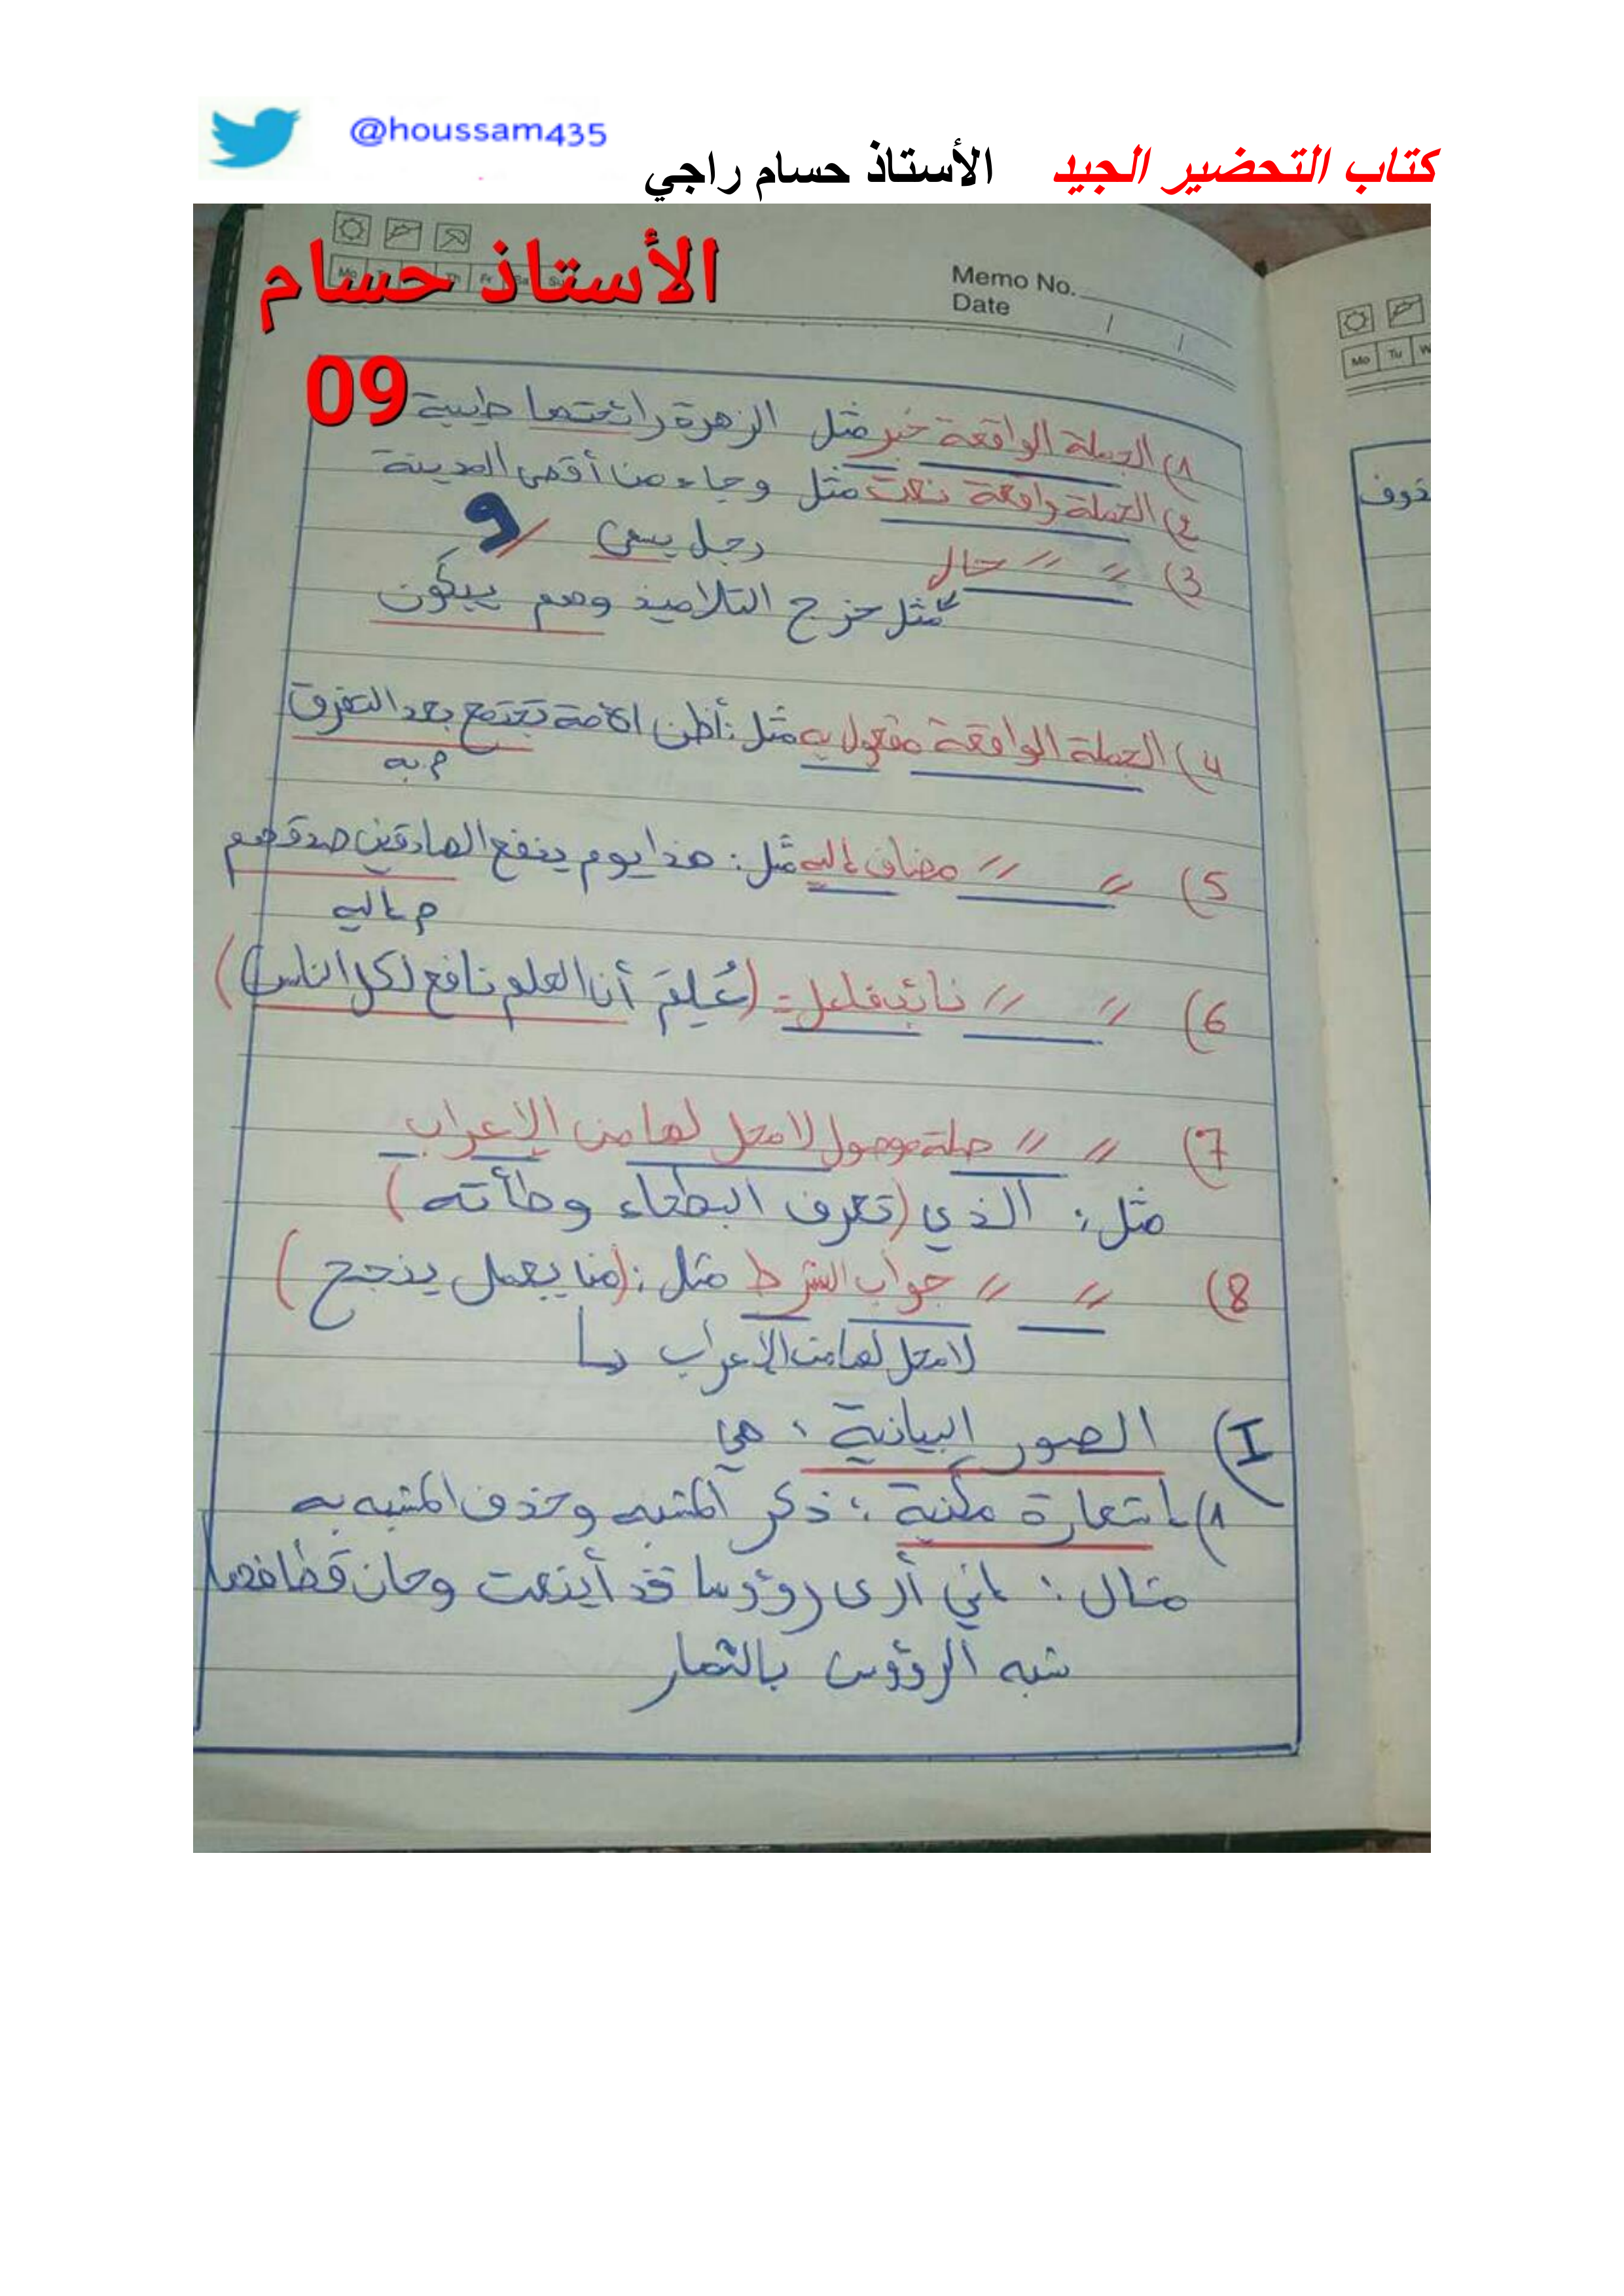 @houssam435
كتاب التحضير الجيد الأستاذ حسام راجي
الأستاذ حسام
09
Mo Tu Th Fr Sa Su
Memo No.
Date / /
1) الجملة الواقعة خبر مثل الزهرة رائحتها طيبة
2) الجملة واقعة نعت مثل وجاء من أقصى المدينة
رجل يسعى
9
3) // // حال
مثل خرج التلاميذ وهم يبكون
4) الجملة الواقعة مفعول به مثل: أظن الأمة تجتمع بعد التفرق
م به
5) // // مضاف إليه مثل: هذا يوم ينفع الصادقين صدقهم
م إليه
6) // // نائب فاعل = (عُلِمَ أن العلم نافع لكل الناس)
7) // // صلة موصول لا محل لها من الإعراب
مثل: الذي (تعرف البطحاء وطأته)
8) // // جواب الشرط مثل: (من يعمل ينجح)
لا محل لها من الإعراب
I) الصور البيانية: هي
1) إستعارة مكنية: ذكر المشبه وحذف المشبه به
مثال: إني أرى رؤوسا قد أينعت وحان قطافها
شبه الرؤوس بالثمار
Mo Tu W